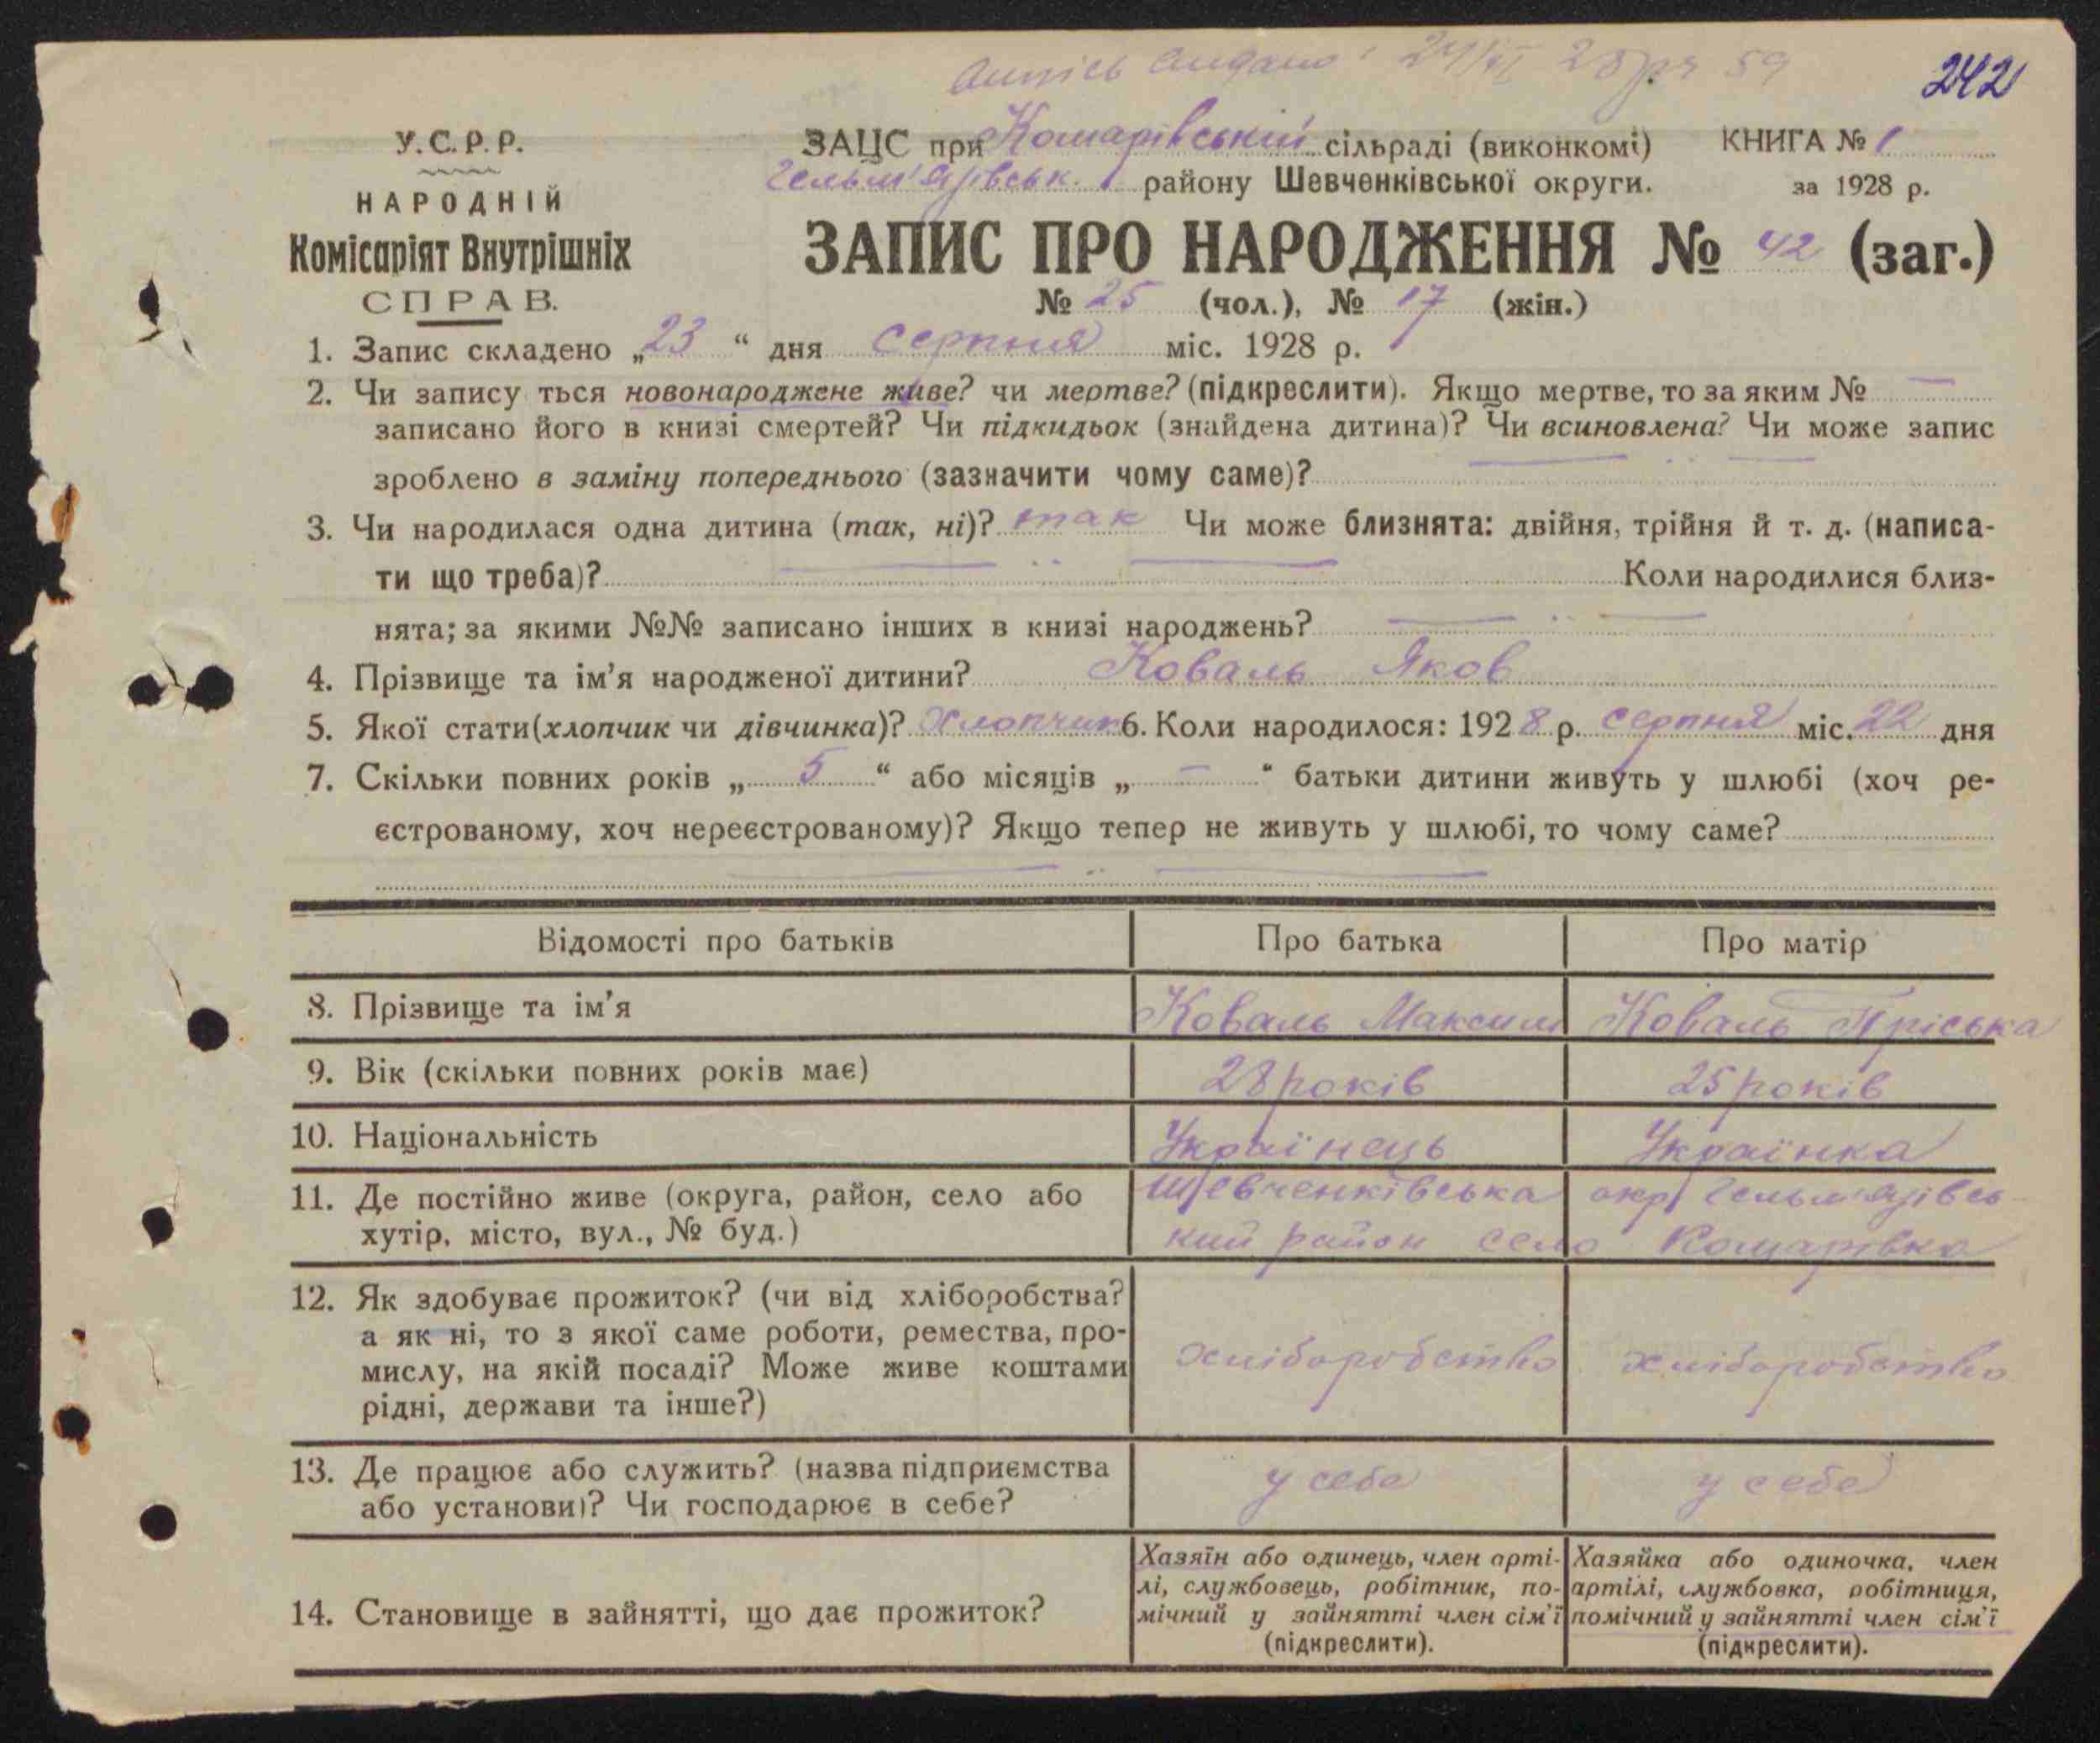 Випись видано 24/VI 28 р № 59
242
У.С.Р.Р.
НАРОДНІЙ
Комісаріят Внутрішніх
СПРАВ.
ЗАЦС при Комарівській сільраді (виконкомі) КНИГА № 1
Гельм'язівськ. району Шевченківської округи. за 1928 р.
ЗАПИС ПРО НАРОДЖЕННЯ № 42 (заг.)
№ 25 (чол.), № 17 (жін.)
1. Запис складено „23“ дня серпня міс. 1928 р.
2. Чи запису ться новонароджене живе? чи мертве? (підкреслити). Якщо мертве, то за яким № —
записано його в книзі смертей? Чи підкидьок (знайдена дитина)? Чи всиновлена? Чи може запис
зроблено в заміну попереднього (зазначити чому саме)? — „ —
3. Чи народилася одна дитина (так, ні)? так Чи може близнята: двійня, трійня й т. д. (написа-
ти що треба)? — „ — Коли народилися близ-
нята; за якими №№ записано інших в книзі народжень? — „ —
4. Прізвище та ім'я народженої дитини? Коваль Яков
5. Якої стати (хлопчик чи дівчинка)? Хлопчик 6. Коли народилося: 1928 р. серпня міс. 22 дня
7. Скільки повних років „ 5 “ або місяців „ — “ батьки дитини живуть у шлюбі (хоч ре-
єстрованому, хоч нереєстрованому)? Якщо тепер не живуть у шлюбі, то чому саме?
— „ —
Відомості про батьків Про батька Про матір
8. Прізвище та ім'я Коваль Максим Коваль Пріська
9. Вік (скільки повних років має) 28 років 25 років
10. Національність Українець Українка
11. Де постійно живе (округа, район, село або Шевченківська окр Гельм'язівсь
хутір, місто, вул., № буд.) кий район село Комарівка
12. Як здобуває прожиток? (чи від хліборобства?
а як ні, то з якої саме роботи, ремества, про-
мислу, на якій посаді? Може живе коштами хліборобство хліборобство
рідні, держави та інше?)
13. Де працює або служить? (назва підприємства у себе у себе
або установи)? Чи господарює в себе?
14. Становище в зайнятті, що дає прожиток?
Хазяїн або одинець, член арті-
лі, службовець, робітник, по-
мічний у зайнятті член сім'ї
(підкреслити).
Хазяйка або одиночка, член
артілі, службовка, робітниця,
помічний у зайнятті член сім'ї
(підкреслити).